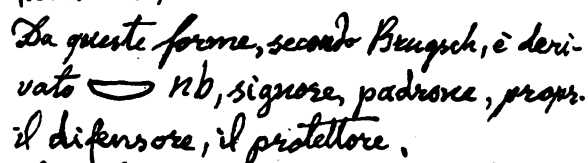 Da queste forme, secondo Brugsch, è deri-
vato 𓎟 nb, signore, padrone, propr.
il difensore, il protettore,